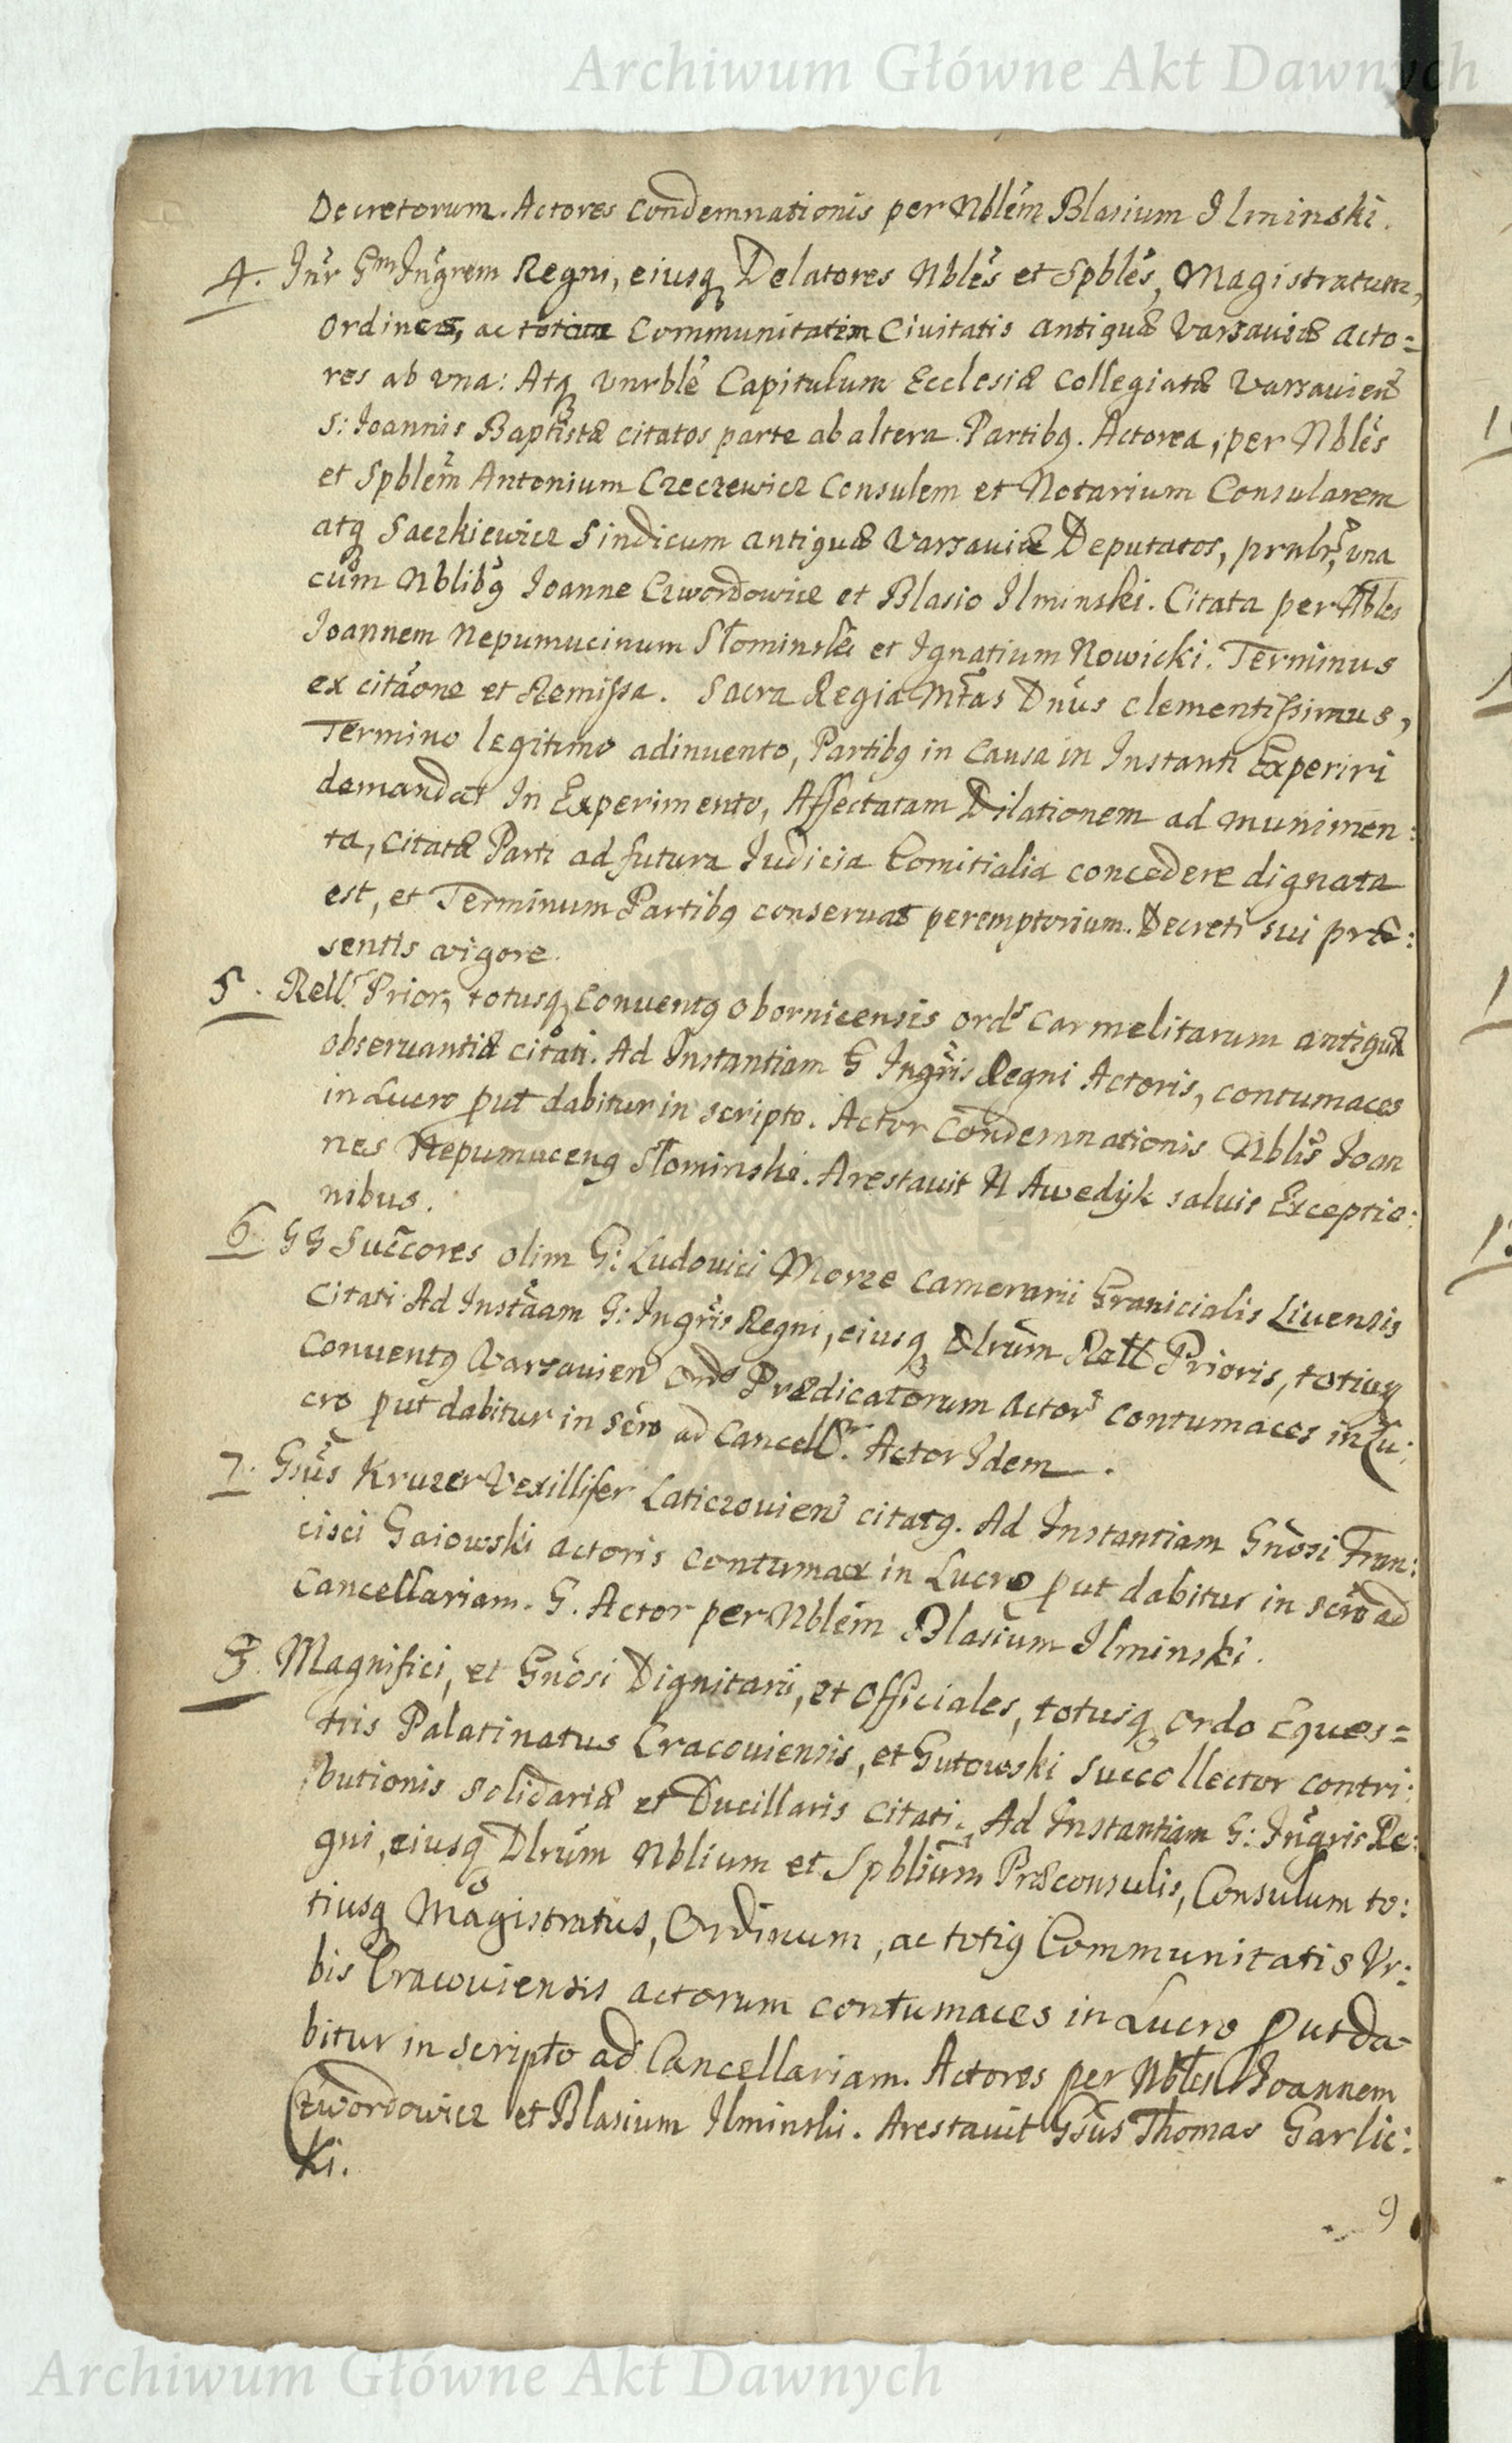 Archiwum Główne Akt Dawnych
Decretorum. Actores Condemnationis per Nblem Blasium Ilminski.
4. Inr Gm Ingrem Regni, eiusq Delatores Nbles et Spbles, Magistratum,
Ordines, ac totam Communitatem Ciuitatis Antiquæ Varsauiæ Acto=
res ab vna: Atq Vnrble Capitulum Ecclesiæ Collegiatæ Varsauien
S: Joannis Baptistæ citatos parte ab altera Partibq. Actorea, per Nbles
et Spblem Antonium Czeczewicz Consulem et Notarium Consularem
atq Saczkiewicz Sindicum Antiquæ Varsauiæ Deputatos, vna
cum Nblibq Joanne Czwordowicz et Blasio Ilminski. Citata per Nbles
Joannem Nepumucinum Słominski et Ignatium Nowicki. Terminus
ex citaone et Remissa. Sacra Regia Mtas Dnus clementissimus,
Termino legitimo adinuento, Partibq in Causa in Instanti Experiri
demandat In Experimento, Affectatam Dilationem ad munimen:
ta, Citatæ Parti ad futura Judicia Comitialia concedere dignata
est, et Terminum Partibq conseruat peremptorium. Decreti sui præ:
sentis vigore.
5. Rell Prior, totusq Conuentq Obornicensis Ords Carmelitarum antiquæ
obseruantiæ citati. Ad Instantiam G Ingris Regni Actoris, contumaces
in Lucro put dabitur in scripto. Actor Condemnationis Nblis Joan
nes Nepumucenq Słominski. Arestauit N Awedyk saluis Exceptio:
nibus.
6. GG Succores olim G: Ludouici Morze Camerarii Granicialis Liuensis
Citati Ad Instaam G: Ingris Regni, eiusq Dlrum Rell Prioris, totiusq
Conuentq Varsauien Ords Prædicatorum Actors contumaces in Lu:
cro put dabitur in scro ad Cancell. Actor Idem.
7. Gsus Kruzer Vexillifer Laticzouien citatq. Ad Instantiam Gnosi Fran:
cisci Gaiowski Actoris contumax in Lucro put dabitur in scro ad
Cancellariam. G. Actor per Nblem Blasium Ilminski.
8. Magnifici, et Gnosi Dignitarii, et Officiales, totusq Ordo Eques=
tris Palatinatus Cracouiensis, et Gutowski Succollector contri:
butionis solidariæ et Ducillaris citati. Ad Instantiam G: Ingris Re:
gni, eiusq Dlrum Nblium et Spblium Præconsulis, Consulum to:
tiusq Magistratus, Ordinum, ac totiq Communitatis Vr:
bis Cracouiensis actorum contumaces in Lucro put da=
bitur in scripto ad Cancellariam. Actores per Nblem Joannem
Czwordowicz et Blasium Ilminski. Arestauit Gsus Thomas Garlic:
ki.
9
Archiwum Główne Akt Dawnych